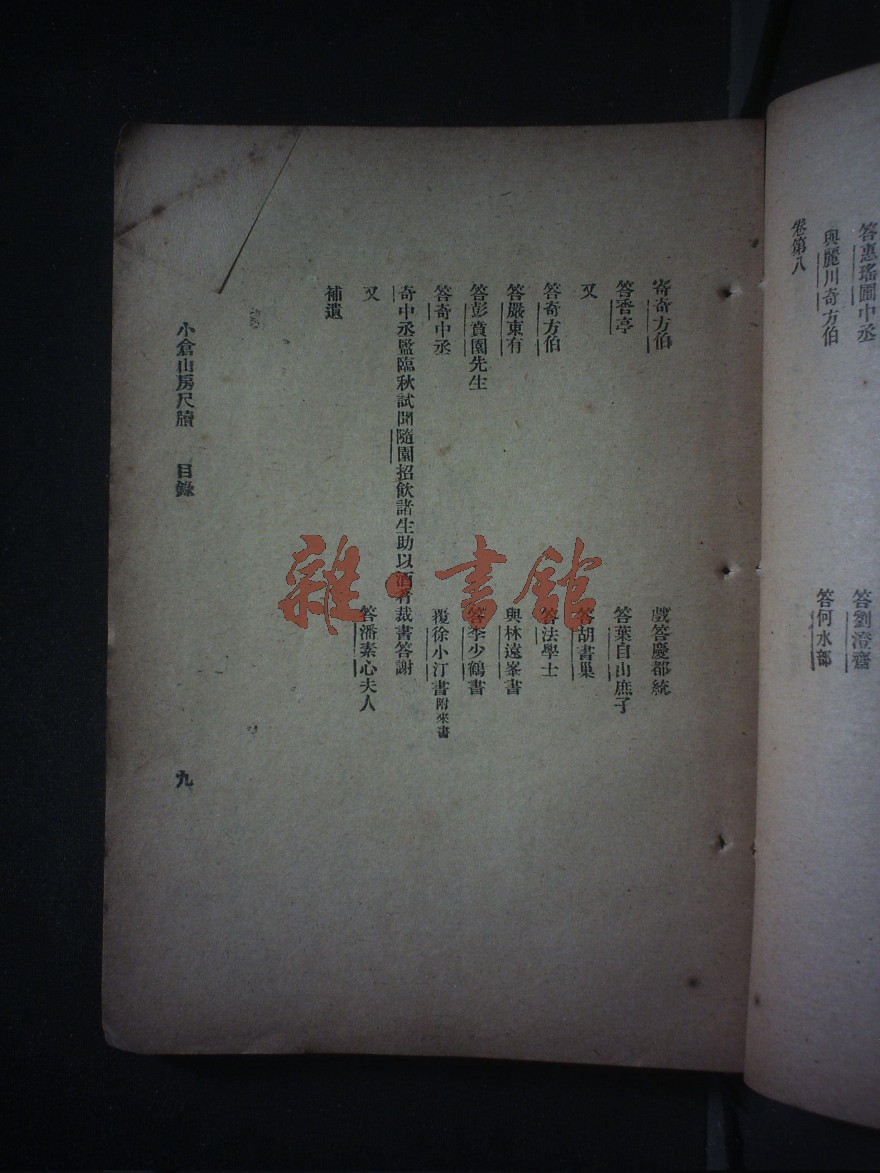 答惠瑤圃中丞
答劉澄齋
與麗川奇方伯
答何水部
卷第八
寄奇方伯
戲答慶都統
答香亭
答葉自山庶子
又
答胡書巢
答奇方伯
答法學士
答嚴東有
與林遠峯書
答彭賁園先生
答李少鶴書
答奇中丞
覆徐小汀書附來書
奇中丞監臨秋試聞隨園招飲諸生助以酒肴裁書答謝
又
答潘素心夫人
補遺
小倉山房尺牘 目錄
九
雜·書館